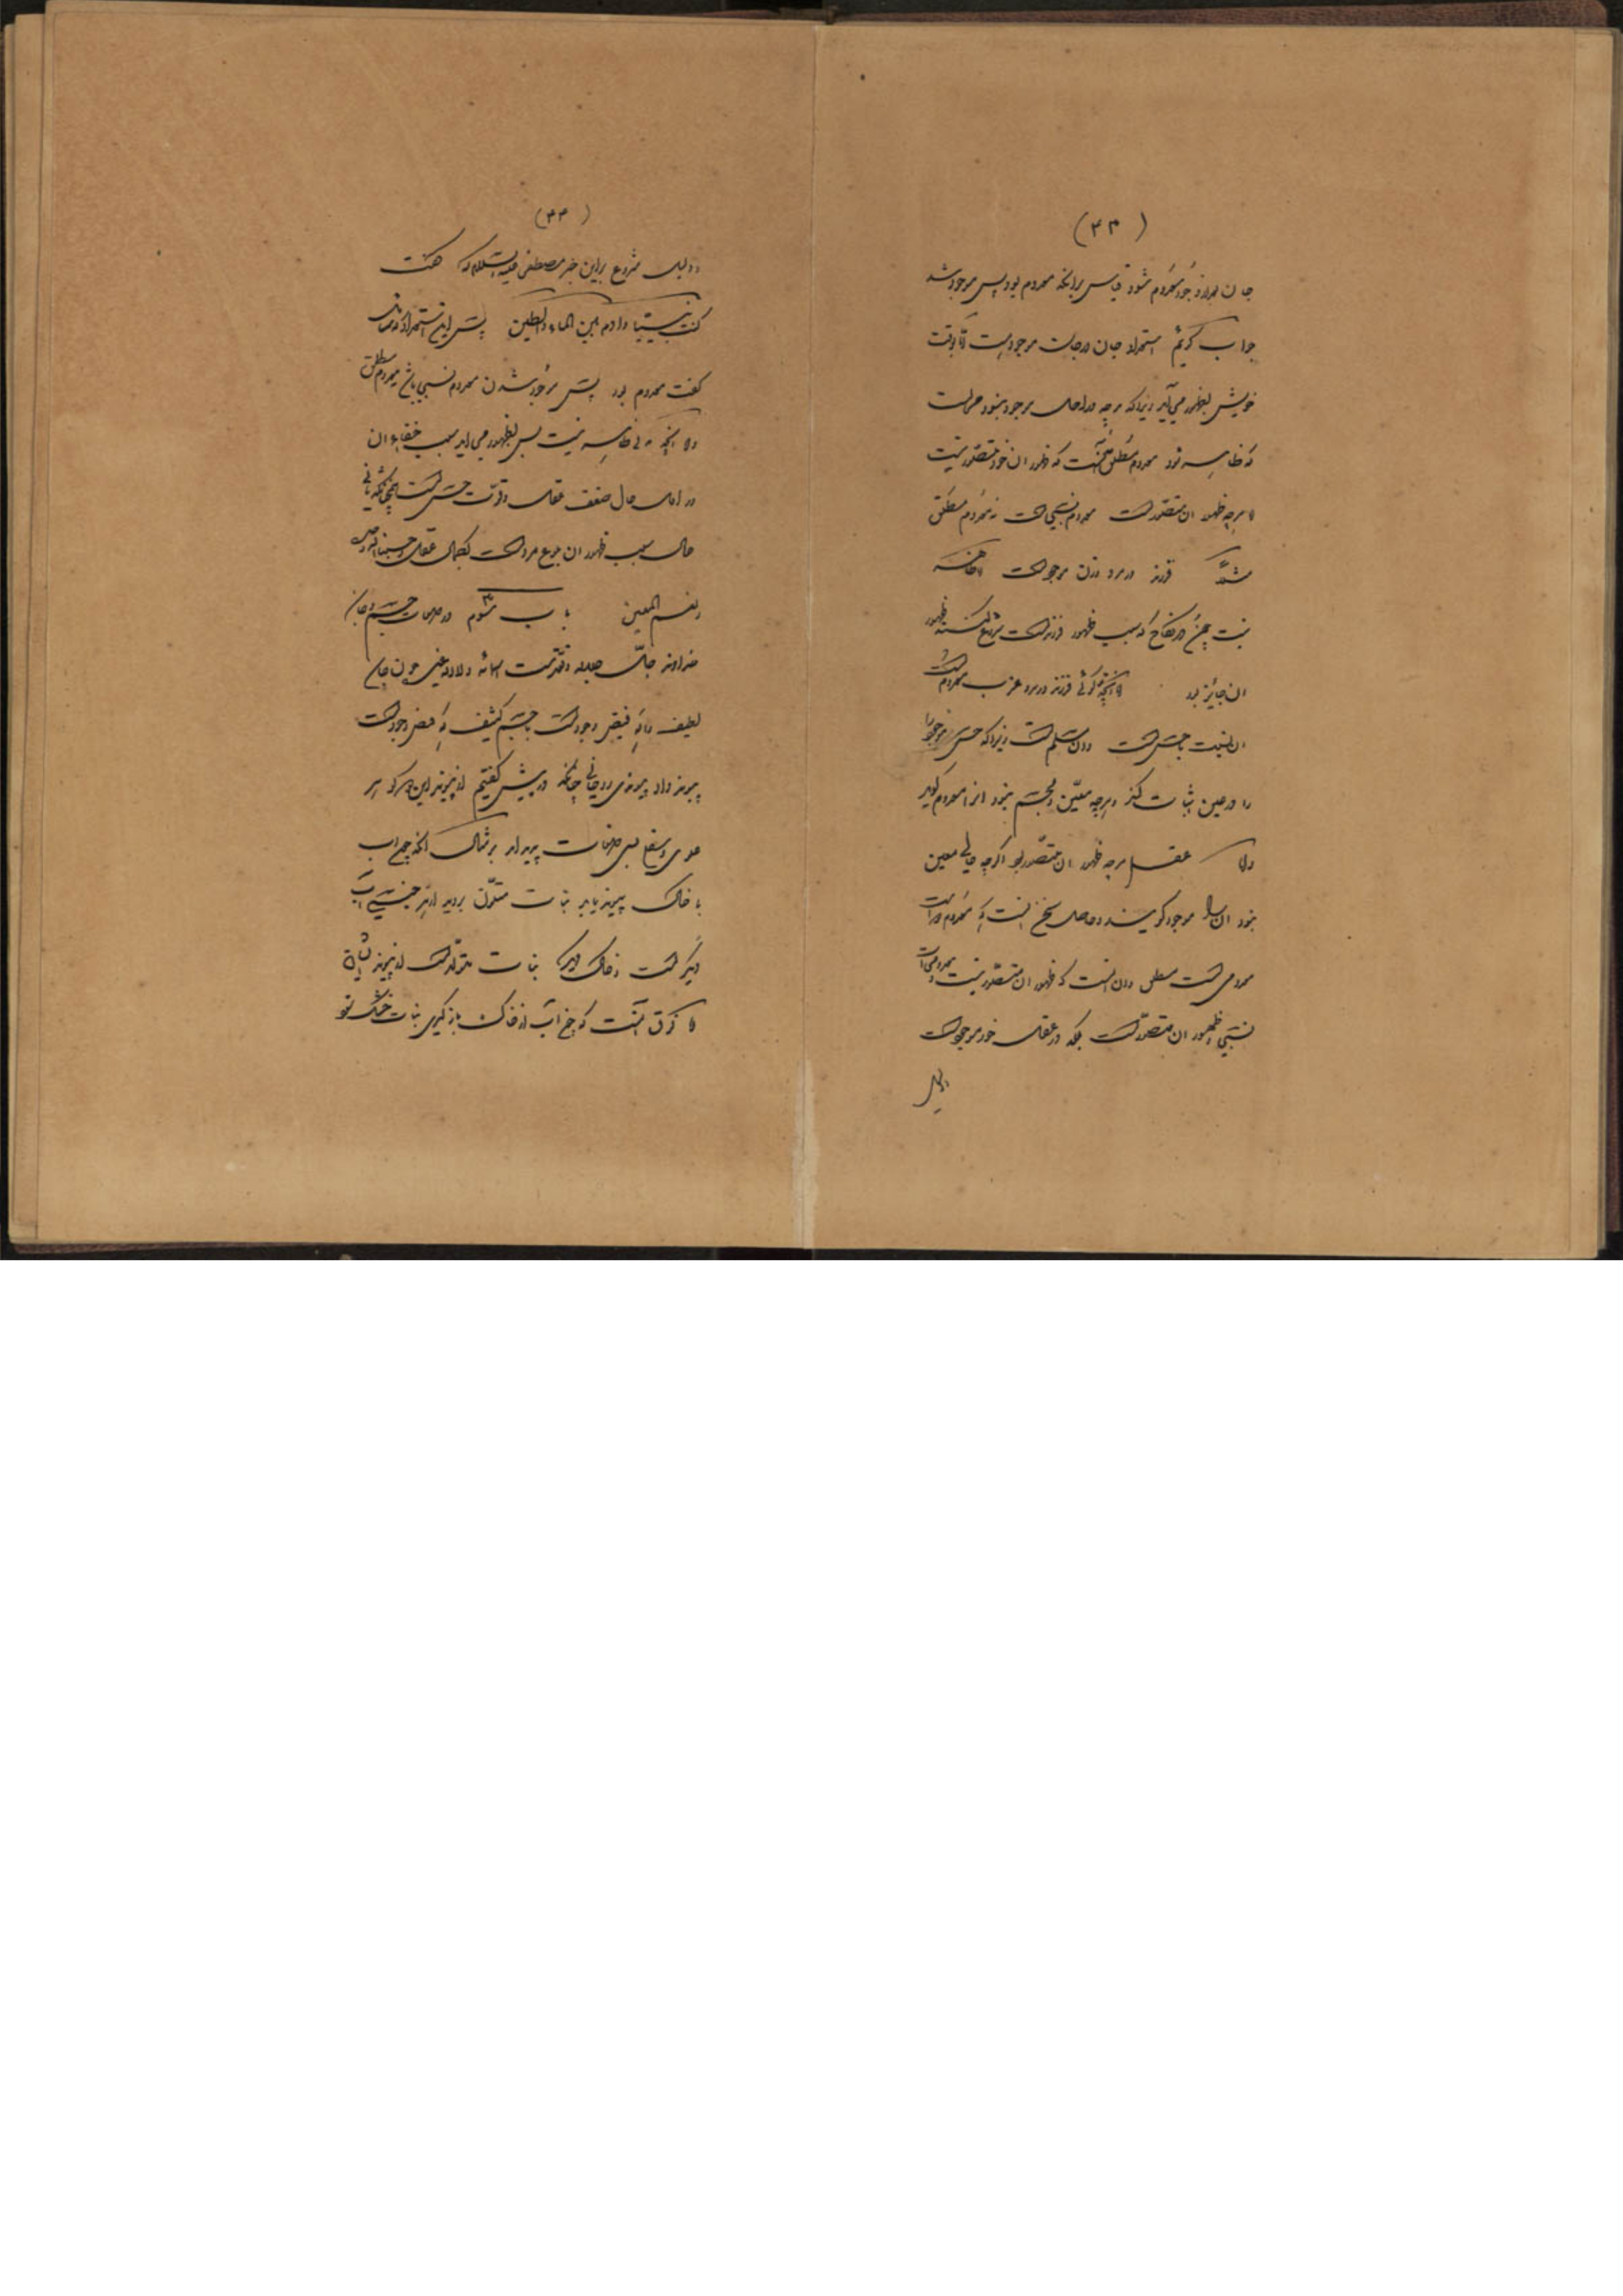 (۴۳)
جان بعد از وجود معدوم شود قیاس برانکه معدوم بود پس موجود شد
جواب کوئیم استمراد جان در جان موجودست تا بوقت
خویش بظهور می‌آید زیرا که هرچه در اصل موجود نبود محال است
که ظاهر شود معدوم مطلق آنست که ظهور ان خود متصور نیست
اما هرچه ظهور ان متصورست معدوم نسبی است نه معدوم مطلق
مثلاً فرزند در مرد و زن موجود است اما ظاهر
نیست چون در نکاح که سبب ظهور فرزند است شروع کنند ظهور
ان جایز بود اما آنچه کوئی فرزند در مرد عزب معدوم است
ان نسبت با حس است و ان مسلم است زیرا که حس موجود
را در عین اثبات کند و هرچه معین و مجسم نبود انرا معدوم کوید
اما عقل هرچه ظهور ان متصور بود اگرچه حالی معین
نبود ان را موجود کویند و حاصل سخن انست که معدوم دو است
معدومی است مطلق و ان انست که ظهور ان متصور نیست و معدومی است
نسبی ظهور ان متصور است بلکه در عقل خود موجود است
دلیل
(۴۴)
و دلیل مشروع براین خبر مصطفی علیه السلام که گفت
کنت نبیّا و ادم بین الماء و الطین پس این استمراد که
گفت معدوم بود پس موجود شدن معدوم نسبی باشد نه معدوم مطلق
اما انچه ظاهر نیست پس بظهور می اید سبب خفاء ان
در اول حال ضعف عقل و قوّت حس است همچنانکه ثانی
حال سبب ظهور ان نوع مرد است بکمال عقل و حسبنا الله
و نعم المعین باب سوم در صفات جسم و جان
خداوند جلّ جلاله و تقدّست اسمائه و لا اله غیره چون جان
لطیف را که فیض وجود است با جسم کثیف که فیض وجود است
پیوند داد پیوندی روحانی چنانکه در پیش کفتیم از پیوند این دو کوهر
علوی و سفلی بسی صفات پدید امد بر مثال انکه چون اب
با خاک پیوند یابد نبات متلوّن بروید از جنسی اب
دیگر است و خاک دیگر نبات متولد است از پیوند ایشان
اما فرق انست که چون آب از خاک بازگیری نبات خشک شود